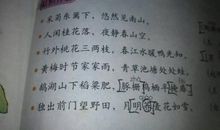 采菊东篱下，悠然见南山。
人闲桂花落，夜静春山空。
竹外桃花三两枝，春江水暖鸭先知。
黄梅时节家家雨，青草池塘处处蛙。
鹅湖山下稻粱肥，豚栅鸡栖半掩扉。
独出前门望野田，月明荞麦花如雪。